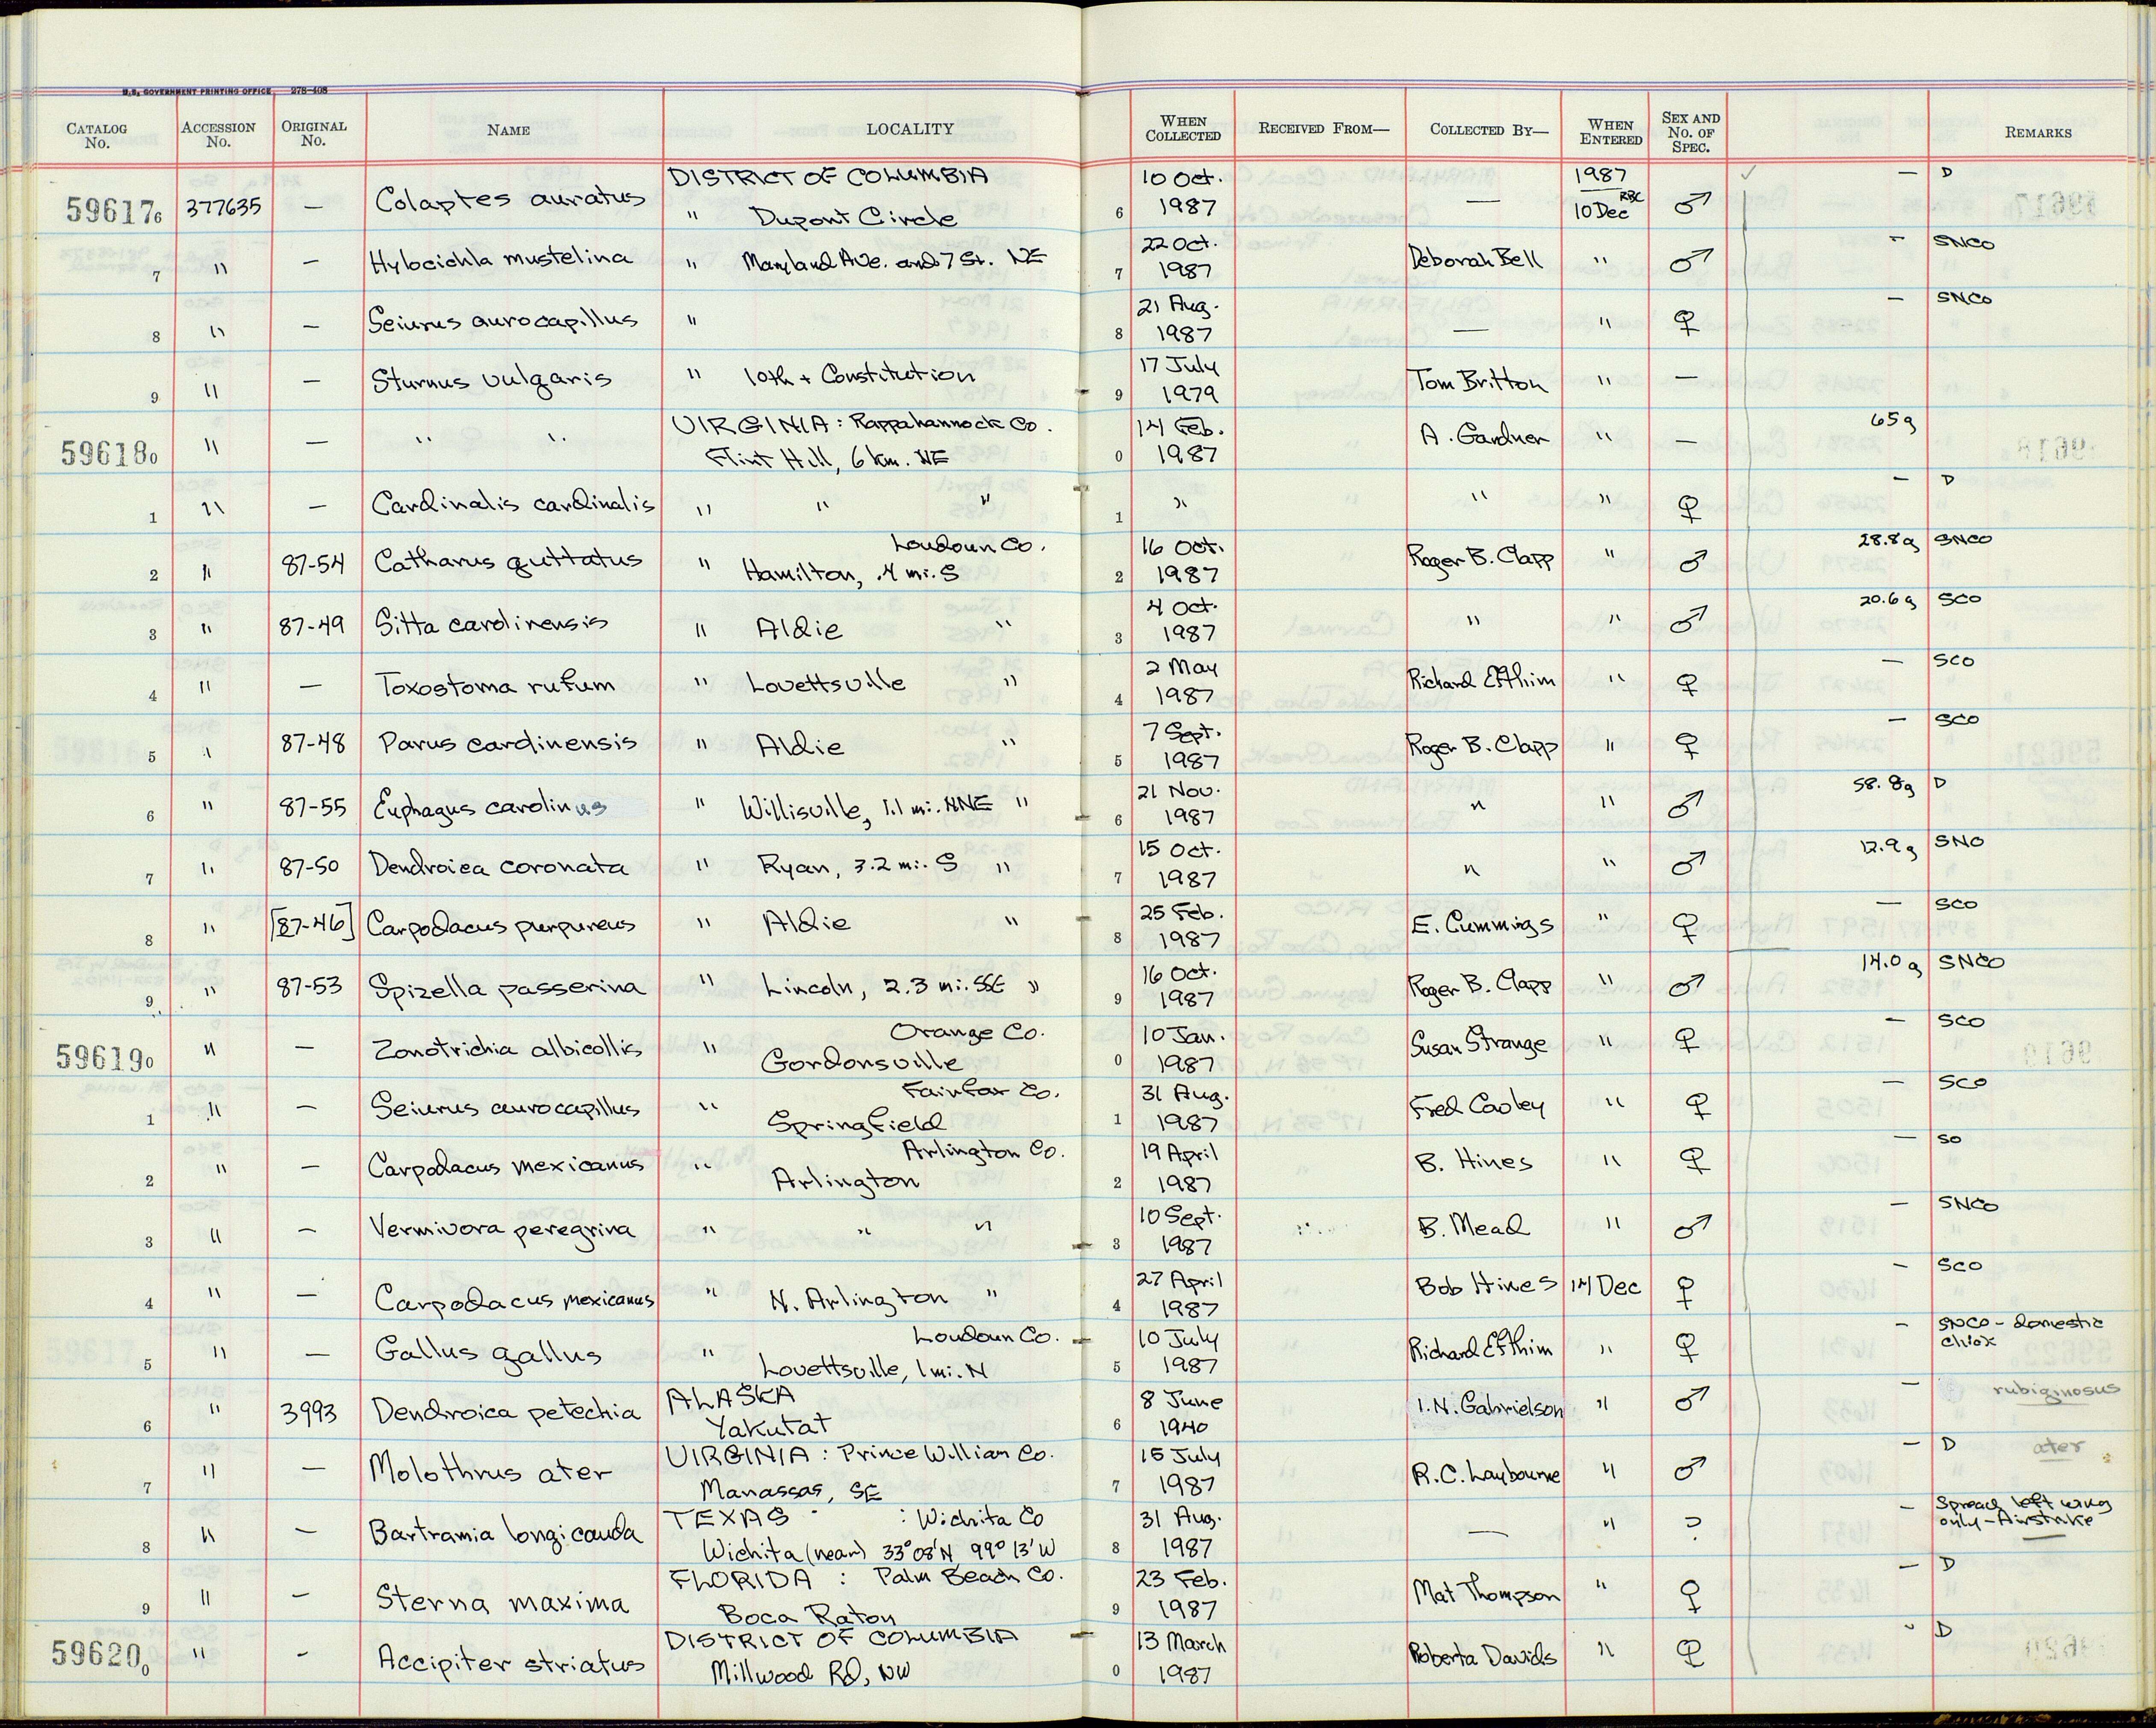 U.S. GOVERNMENT PRINTING OFFICE 278-408
CATALOG No. ACCESSION No. ORIGINAL No. NAME LOCALITY WHEN COLLECTED RECEIVED FROM— COLLECTED BY— WHEN ENTERED SEX AND No. OF SPEC. REMARKS
DISTRICT OF COLUMBIA 10 Oct. 1987 — D
596176 377635 — Colaptes auratus " Dupont Circle 6 1987 — RBC 10 Dec ♂
22 Oct. - SNCO
7 " — Hylocichla mustelina " Maryland Ave. and 7 St. NE 7 1987 Deborah Bell " ♂
21 Aug. — SNCO
8 " — Seiurus aurocapillus " 8 1987 — " ♀
17 July
9 " — Sturnus vulgaris " 10th + Constitution 9 1979 Tom Britton " —
VIRGINIA: Rappahannock Co. 14 Feb. 65g
596180 " — " " Flint Hill, 6 km. NE 0 1987 A. Gardner " —
— D
1 " — Cardinalis cardinalis " " " 1 " " " ♀
Loudoun Co. 16 Oct. 28.8g SNCO
2 " 87-54 Catharus guttatus " Hamilton, .4 mi. S 2 1987 Roger B. Clapp " ♂
4 Oct. 20.6g SCO
3 " 87-49 Sitta carolinensis " Aldie " 3 1987 " " ♂
2 May — SCO
4 " — Toxostoma rufum " Lovettsville " 4 1987 Richard Efthim " ♀
7 Sept. — SCO
5 " 87-48 Parus carolinensis " Aldie " 5 1987 Roger B. Clapp " ♀
21 Nov. 58.8g D
6 " 87-55 Euphagus carolinus " Willisville, 1.1 mi. NNE " 6 1987 " " ♂
15 Oct. 12.9g SNO
7 " 87-50 Dendroica coronata " Ryan, 3.2 mi. S " 7 1987 " " ♂
25 Feb. — SCO
8 " [87-46] Carpodacus purpureus " Aldie " 8 1987 E. Cummigs " ♀
16 Oct. 14.0g SNCO
9 " 87-53 Spizella passerina " Lincoln, 2.3 mi. SSE " 9 1987 Roger B. Clapp " ♂
Orange Co. 10 Jan. — SCO
596190 " — Zonotrichia albicollis " Gordonsville 0 1987 Susan Strange " ♀
Fairfax Co. 31 Aug. — SCO
1 " — Seiurus aurocapillus " Springfield 1 1987 Fred Cooley " ♀
Arlington Co. 19 April — SO
2 " — Carpodacus mexicanus " Arlington 2 1987 B. Hines " ♀
10 Sept. — SNCO
3 " — Vermivora peregrina " " " 3 1987 B. Mead " ♂
27 April - SCO
4 " — Carpodacus mexicanus " N. Arlington " 4 1987 Bob Hines 14 Dec ♀
Loudoun Co. 10 July - SNCO - domestic chick
5 " — Gallus gallus " Lovettsville, 1 mi. N 5 1987 Richard Efthim " ♀
ALASKA 8 June — rubiginosus
6 " 3993 Dendroica petechia Yakutat 6 1940 I.N. Gabrielson " ♂
VIRGINIA: Prince William Co. 15 July — D ater
7 " — Molothrus ater Manassas, SE 7 1987 R.C. Laybourne " ♂
TEXAS : Wichita Co 31 Aug. — Spread left wing only - Airstrike
8 " — Bartramia longicauda Wichita (near) 33°08'N, 99°13'W 8 1987 — " ?
FLORIDA : Palm Beach Co. 23 Feb. — D
9 " — Sterna maxima Boca Raton 9 1987 Mat Thompson " ♀
DISTRICT OF COLUMBIA 13 March - D
596200 " - Accipiter striatus Millwood Rd, NW 0 1987 Roberta Davids " ♀